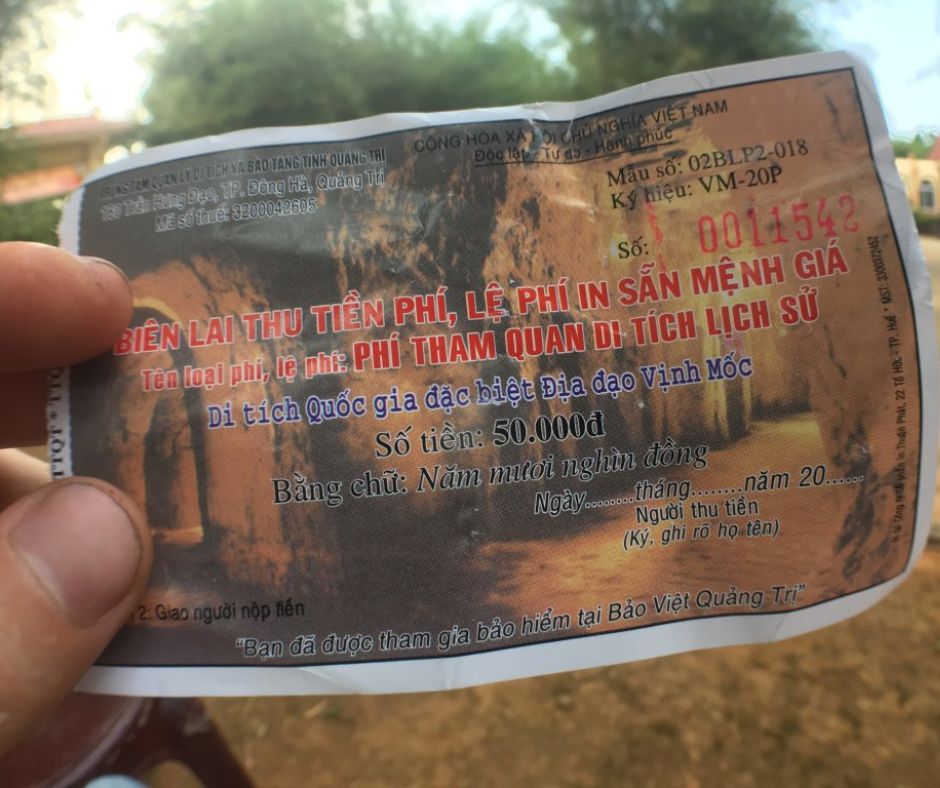 TRUNG TÂM QUẢN LÝ DI TÍCH VÀ BẢO TÀNG TỈNH QUẢNG TRỊ
Trần Hưng Đạo, TP. Đông Hà, Quảng Trị
Mã số thuế: 3200042605
CỘNG HÒA XÃ HỘI CHỦ NGHĨA VIỆT NAM
Độc lập - Tự do - Hạnh phúc
Mẫu số: 02BLP2-018
Ký hiệu: VM-20P
Số: 0011542
BIÊN LAI THU TIỀN PHÍ, LỆ PHÍ IN SẴN MỆNH GIÁ
Tên loại phí, lệ phí: PHÍ THAM QUAN DI TÍCH LỊCH SỬ
Di tích Quốc gia đặc biệt Địa đạo Vịnh Mốc
Số tiền: 50.000đ
Bằng chữ: Năm mươi nghìn đồng
Ngày........tháng........năm 20......
Người thu tiền
(Ký, ghi rõ họ tên)
2: Giao người nộp tiền
"Bạn đã được tham gia bảo hiểm tại Bảo Việt Quảng Trị"
22 Tố Hữu - TP. Huế * MST: 3300372452